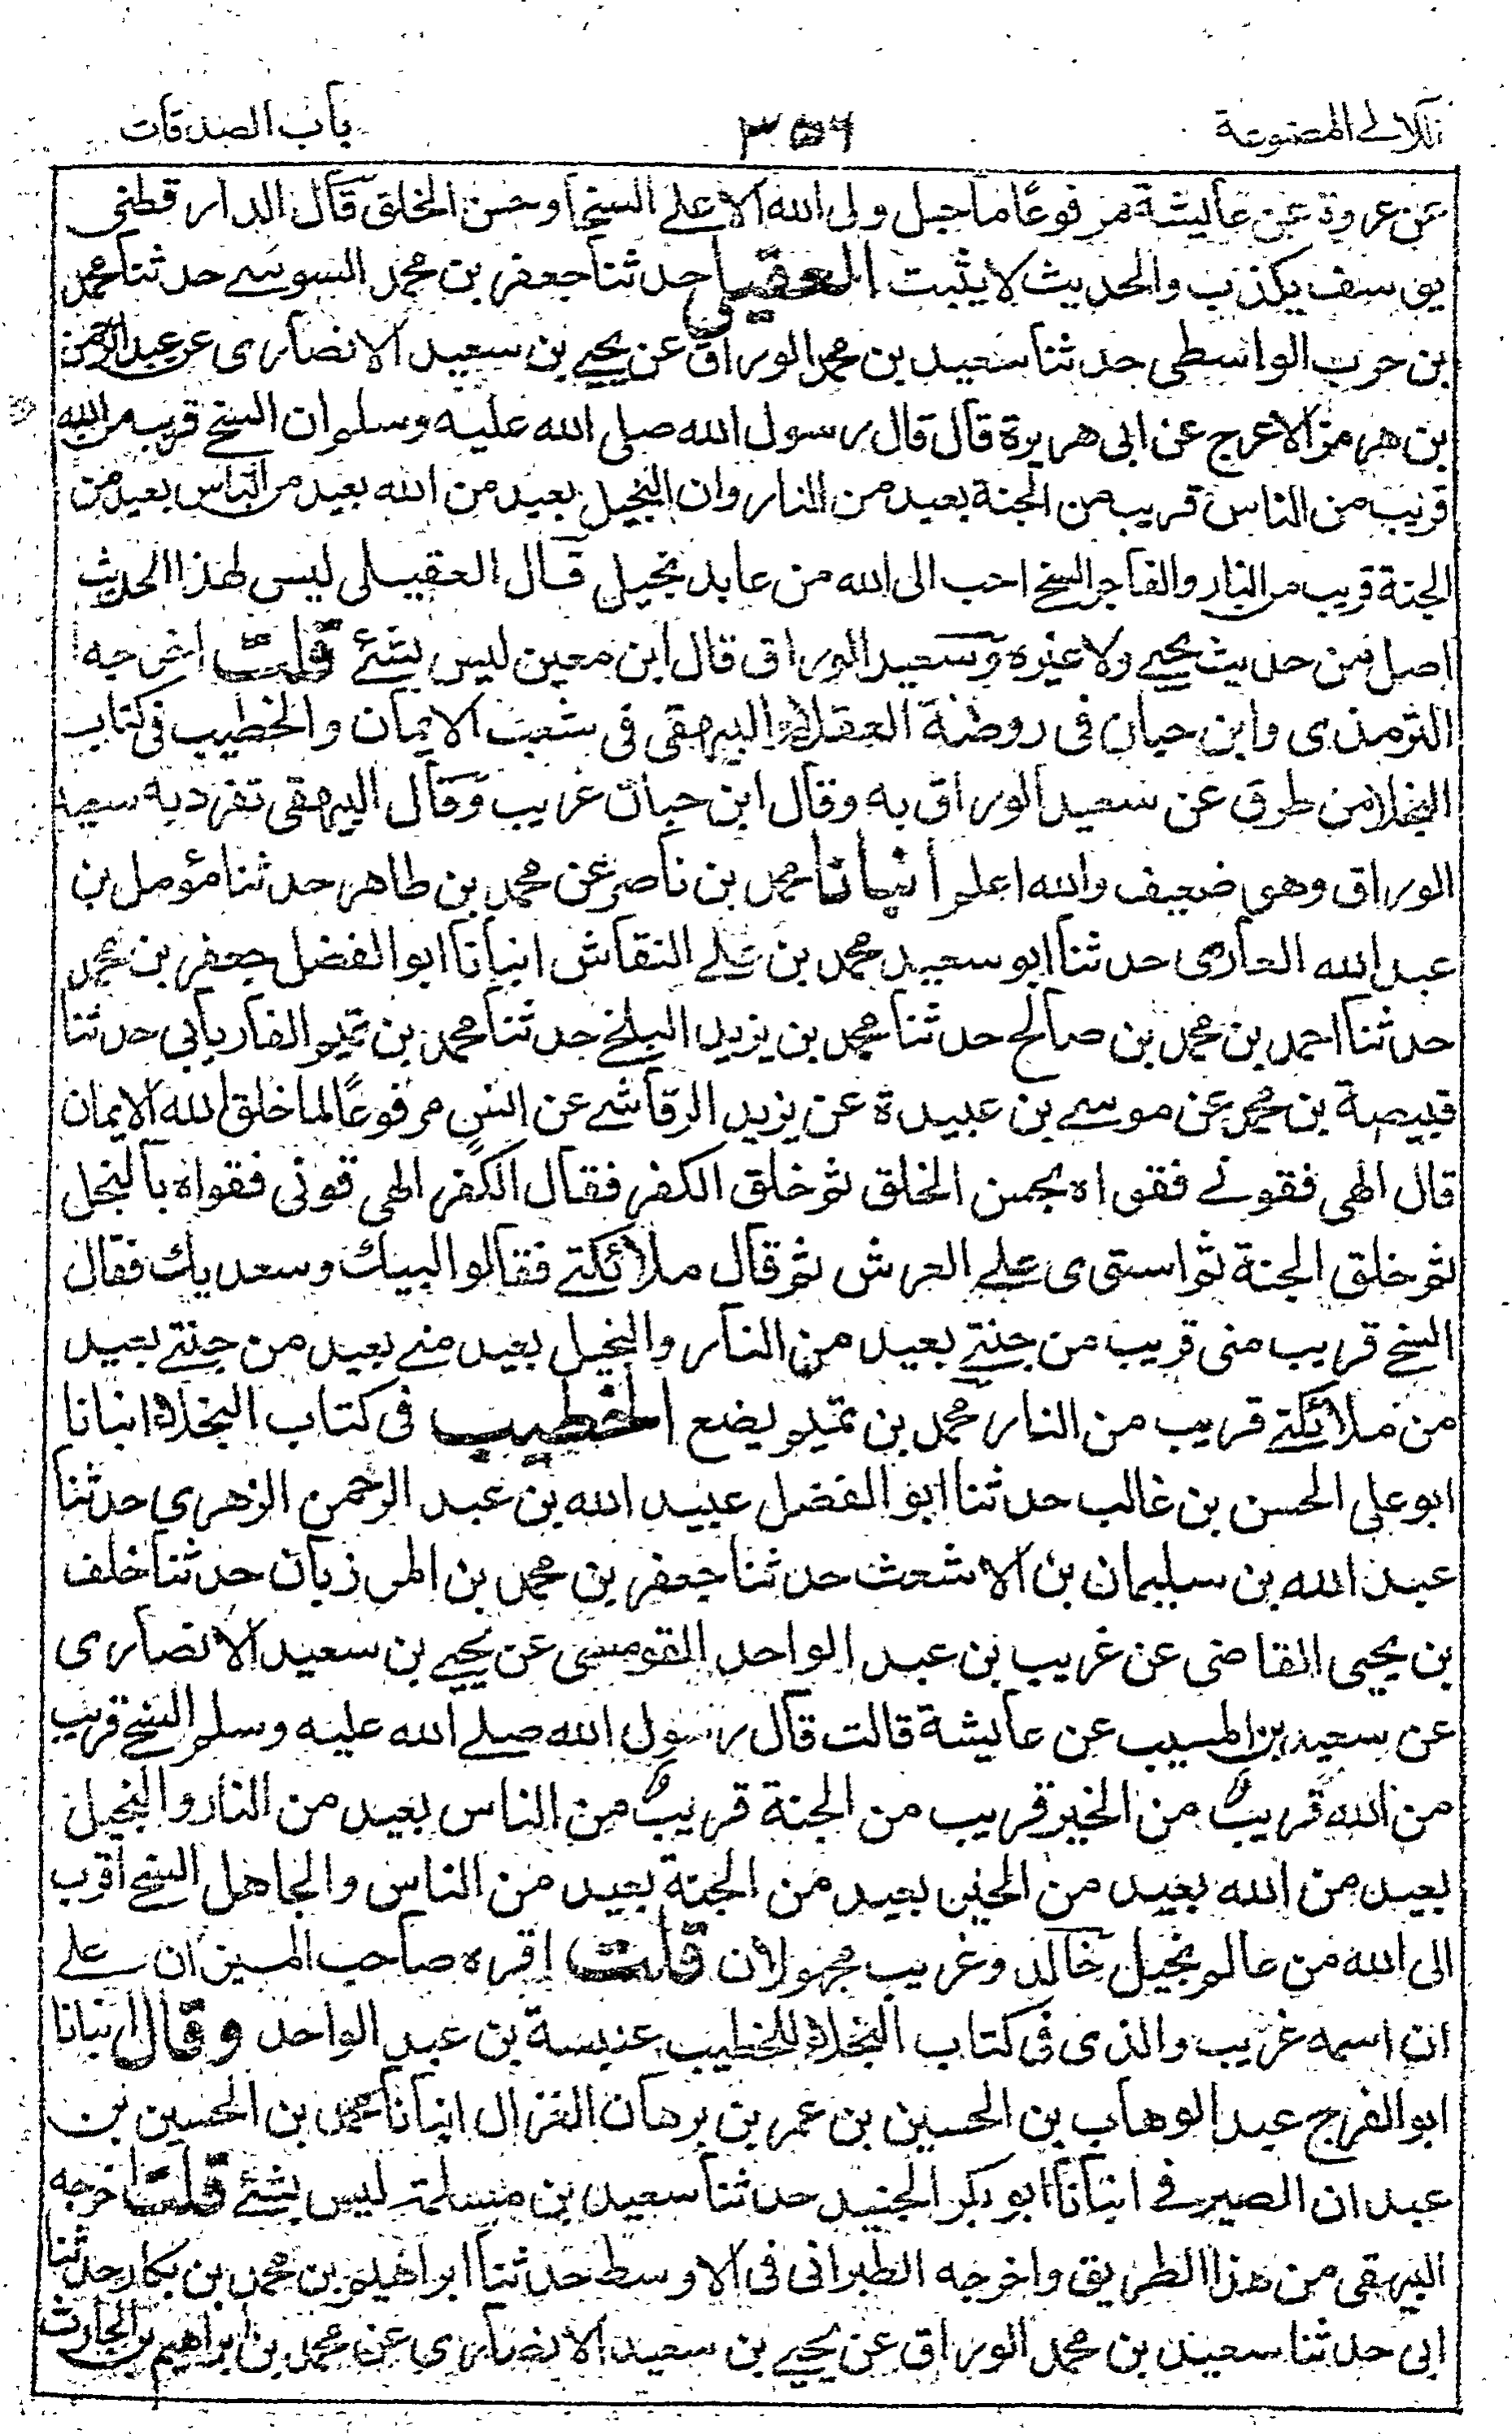 اللآلى المصنوعة
٣٥٦
باب الصدقات
عن عروة عن عايشة مرفوعًا ما جبل ولى الله الا على السخا وحسن الخلق قال الدارقطنى
يوسف يكذب والحديث لا يثبت العقيلى حدثنا جعفر بن محمد السوسى حدثنا محمد
بن حرب الواسطى حدثنا سعيد بن محمد الوراق عن يحيى بن سعيد الانصارى عن عبد الرحمن
بن هرمز الاعرج عن ابى هريرة قال قال رسول الله صلى الله عليه وسلم ان السخى قريب من الله
قريب من الناس قريب من الجنة بعيد من النار وان البخيل بعيد من الله بعيد من الناس بعيد من
الجنة قريب من النار والفاجر السخى احب الى الله من عابد بخيل قال العقيلى ليس لهذا الحديث
اصل من حديث يحيى ولا غيره وسعيد الوراق قال ابن معين ليس بشئ قلت اخرجه
الترمذى وابن حبان فى روضة العقلاء والبيهقى فى شعب الايمان والخطيب فى كتاب
البخلا من طرق عن سعيد الوراق به وقال ابن حبان غريب وقال البيهقى تفرد به سعيد
الوراق وهو ضعيف والله اعلم أنبانا محمد بن ناصر عن محمد بن طاهر حدثنا مؤمل بن
عبد الله حدثنا ابو سعيد محمد بن على النقاش انبانا ابو الفضل جعفر بن محمد
حدثنا احمد بن محمد بن صالح حدثنا محمد بن يزيد البلخى حدثنا محمد بن تميم الفاريابى حدثنا
قبيصة بن محمد عن موسى بن عبيدة عن يزيد الرقاشى عن انس مرفوعًا لما خلق الله الايمان
قال الهى فقونى فقواه بحسن الخلق ثم خلق الكفر فقال الكفر الهى قونى فقواه بالبخل
ثم خلق الجنة ثم استوى على العرش ثم قال ملائكتى فقالوا لبيك وسعديك فقال
السخى قريب منى قريب من جنتى بعيد من النار والبخيل بعيد منى بعيد من جنتى بعيد
من ملائكتى قريب من النار محمد بن تميم يضع الخطيب فى كتاب البخلاء انبانا
ابو على الحسن بن غالب حدثنا ابو الفضل عبيد الله بن عبد الرحمن الزهرى حدثنا
عبد الله بن سليمان بن الاشعث حدثنا جعفر بن محمد بن المرزبان حدثنا خلف
بن يحيى القاضى عن غريب بن عبد الواحد القومسى عن يحيى بن سعيد الانصارى
عن سعيد بن المسيب عن عايشة قالت قال رسول الله صلى الله عليه وسلم السخى قريب
من الله قريبٌ من الخير قريب من الجنة قريبٌ من الناس بعيد من النار والبخيل
بعيد من الله بعيد من الخير بعيد من الجنة بعيد من الناس والجاهل السخى اقرب
الى الله من عالم بخيل خالد وغريب مجهولان قلت اقره صاحب الميزان على
ان اسمه غريب والذى فى كتاب البخلاء للخطيب عنبسة بن عبد الواحد وقال انبانا
ابو الفرج عبد الوهاب بن الحسين بن عمر بن برهان الغزال انبانا محمد بن الحسين بن
عبدان الصيرفى انبانا ابو بكر الجنيد حدثنا سعيد بن مسلمة ليس بشئ قلت اخرجه
البيهقى من هذا الطريق واخرجه الطبرانى فى الاوسط حدثنا ابراهيم بن محمد بن بكار حدثنا
ابى حدثنا سعيد بن محمد الوراق عن يحيى بن سعيد الانصارى عن محمد بن ابراهيم بن الحارث